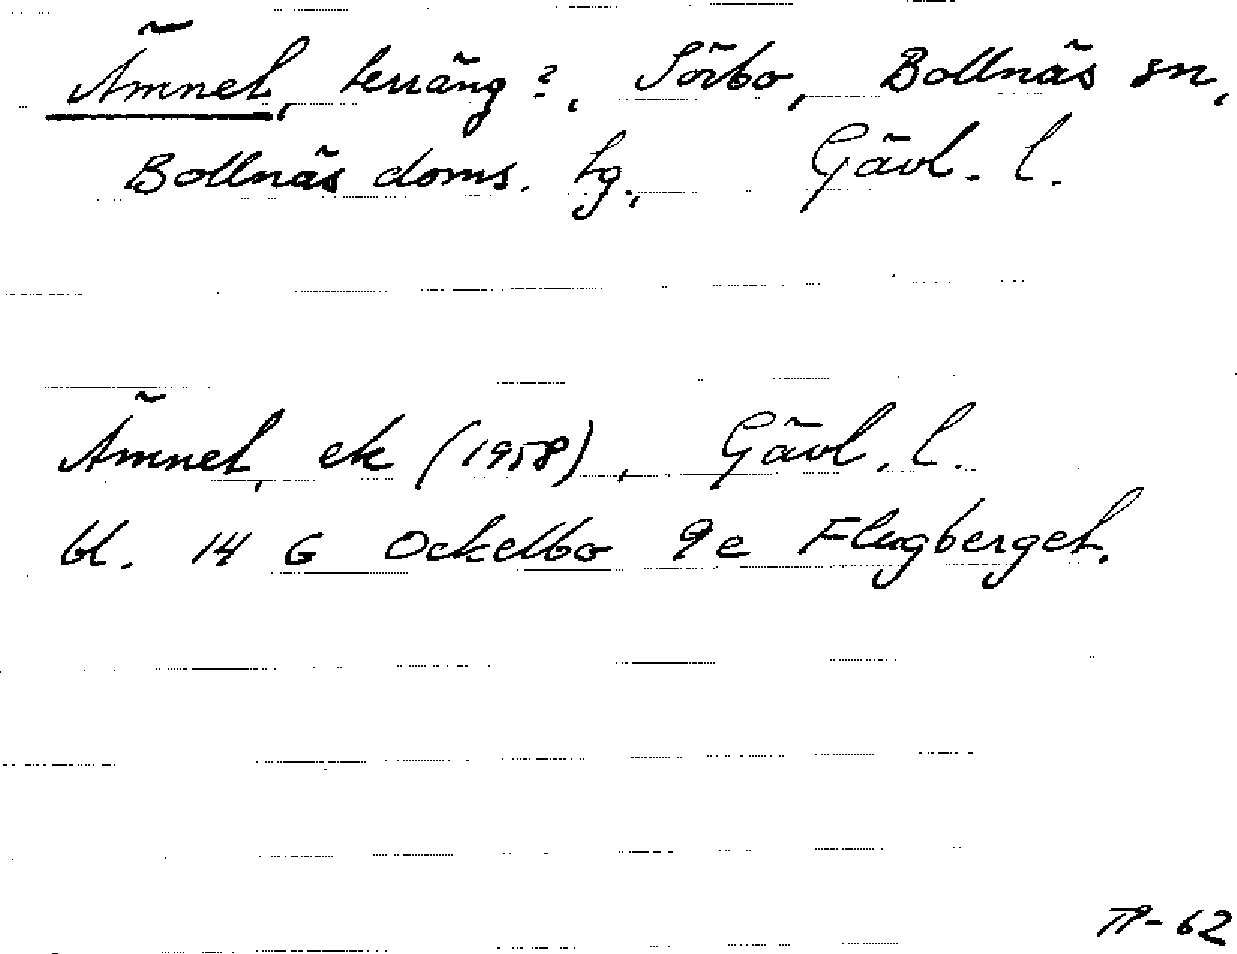 Ämnet, terräng?, Sörbo, Bollnäs sn,
Bollnäs doms. tg., Gävl. l.
Ämnet, ek (1958), Gävl. l.
bl. 14 G Ockelbo 9e Flugberget.
-62